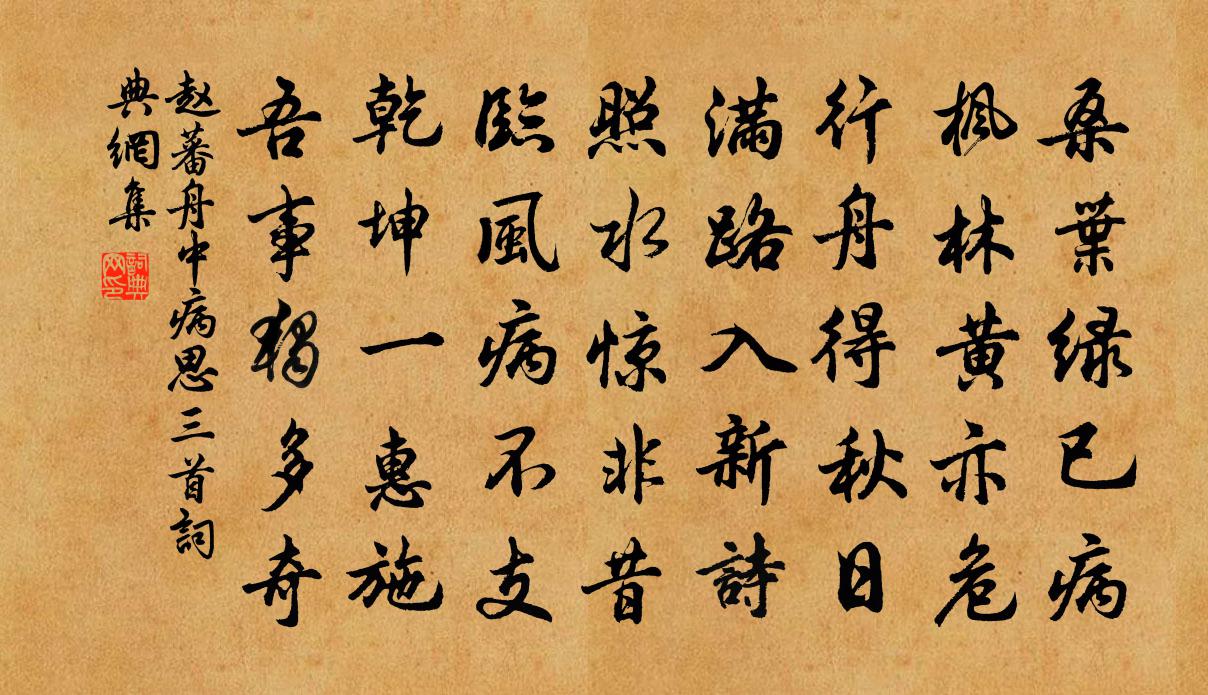 桑葉绿已病
楓林黄亦危
行舟得秋日
满路入新詩
照水惊非昔
臨風病不支
乾坤一惠施
吾事独多奇
赵蕃舟中病思三首詞
典網集
詞典
网印